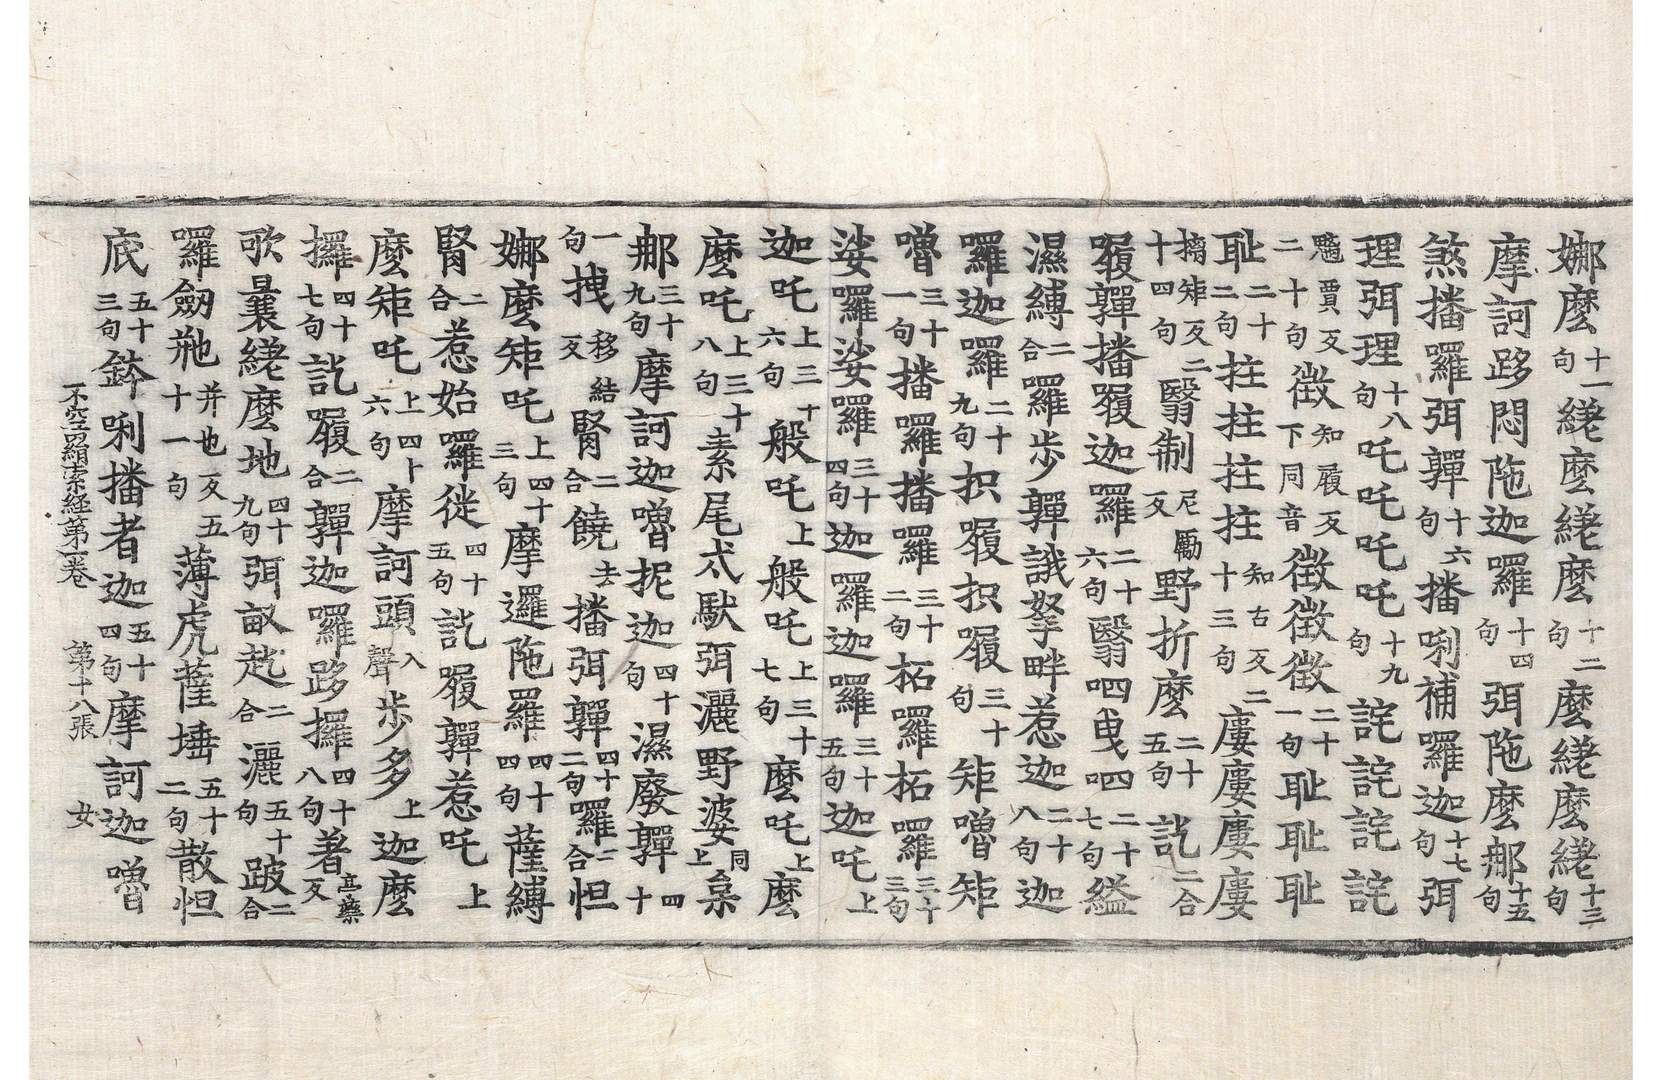 娜麼十一句縒麼縒麼十二句麼縒麼縒十三句
摩訶跢悶陁迦囉十四句弭陁麼郍十五句
煞播囉弭鼾十六句播唎補囉迦十七句弭
理弭理十八句吒吒吒吒十九句詫詫詫詫
賈反二十句徵知履反下同音徵徵徵二十一句耻耻耻
耻二十二句拄拄拄拄知古反二十三句廔廔廔廔
摛矩反二十四句翳制尼勵反野折麼二十五句訖二合
履鼾播履迦囉二十六句翳呬曳呬二十七句縊
濕縛二合囉步鼾誐拏畔惹迦二十八句迦
囉迦囉二十九句抧履抧履三十句矩嚕矩
嚕三十一句播囉播囉三十二句柘囉柘囉三十三句
娑囉娑囉三十四句迦囉迦囉三十五句迦吒上
迦吒上三十六句般吒上般吒上三十七句麼吒上麼
麼吒上三十八句素尾忒馱弭灑野婆同上枲
郍三十九句摩訶迦嚕抳迦四十句濕廢鼾四十
一句拽移結反腎二合饒去播弭鼾四十二句囉二合怛
娜麼矩吒上四十三句摩邏陁囉四十四句薩縛
腎二合惹始囉徙四十五句訖履鼾惹吒上
麼矩吒上四十六句摩訶頭入聲步多上迦麼
攞四十七句訖履二合鼾迦囉跢攞四十八句著亭藥反
歌曩縒麼地四十九句弭畝赴二合灑五十句跛二合
囉劒䶔并也反五十一句薄虎薩埵五十二句散怛
底五十三句鉢唎播者迦五十四句摩訶迦嚕
不空羂索経第一卷 第十八張 女